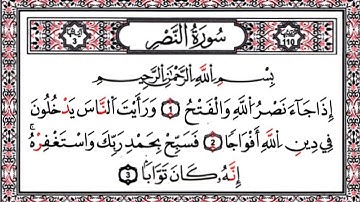 سُورَةُ النَّصْرِ
3
110
بِسْمِ اللَّهِ الرَّحْمَٰنِ الرَّحِيمِ
إِذَا جَآءَ نَصْرُ اللَّهِ وَالْفَتْحُ 1 وَرَأَيْتَ النَّاسَ يَدْخُلُونَ
فِي دِينِ اللَّهِ أَفْوَاجًا 2 فَسَبِّحْ بِحَمْدِ رَبِّكَ وَاسْتَغْفِرْهُ ۚ
إِنَّهُۥ كَانَ تَوَّابًا 3